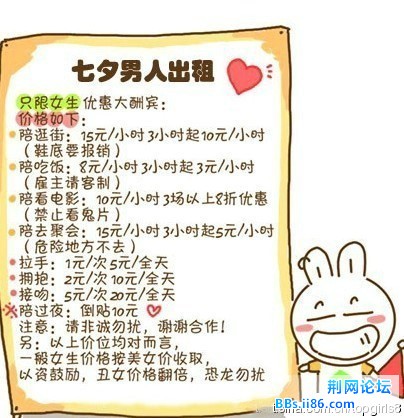 七夕男人出租
只限女生优惠大酬宾：
价格如下：
陪逛街：15元/小时 3小时起10元/小时
（鞋底要报销）
陪吃饭：8元/小时3小时起3元/小时
（雇主请客制）
陪看电影：10元/小时 3场以上8折优惠
（禁止看鬼片）
陪去聚会：15元/小时3小时起5元/小时
（危险地方不去）
拉手：1元/次 5元/全天
拥抱：2元/次 10元/全天
接吻：5元/次 20元/全天
※陪过夜：倒贴10元
注意：请非诚勿扰，谢谢合作！
另：以上价位均对而言，
一般女生价格按美女价收取，
以资鼓励，丑女价格翻倍，恐龙勿扰
荆网论坛
BBs.ii86.com